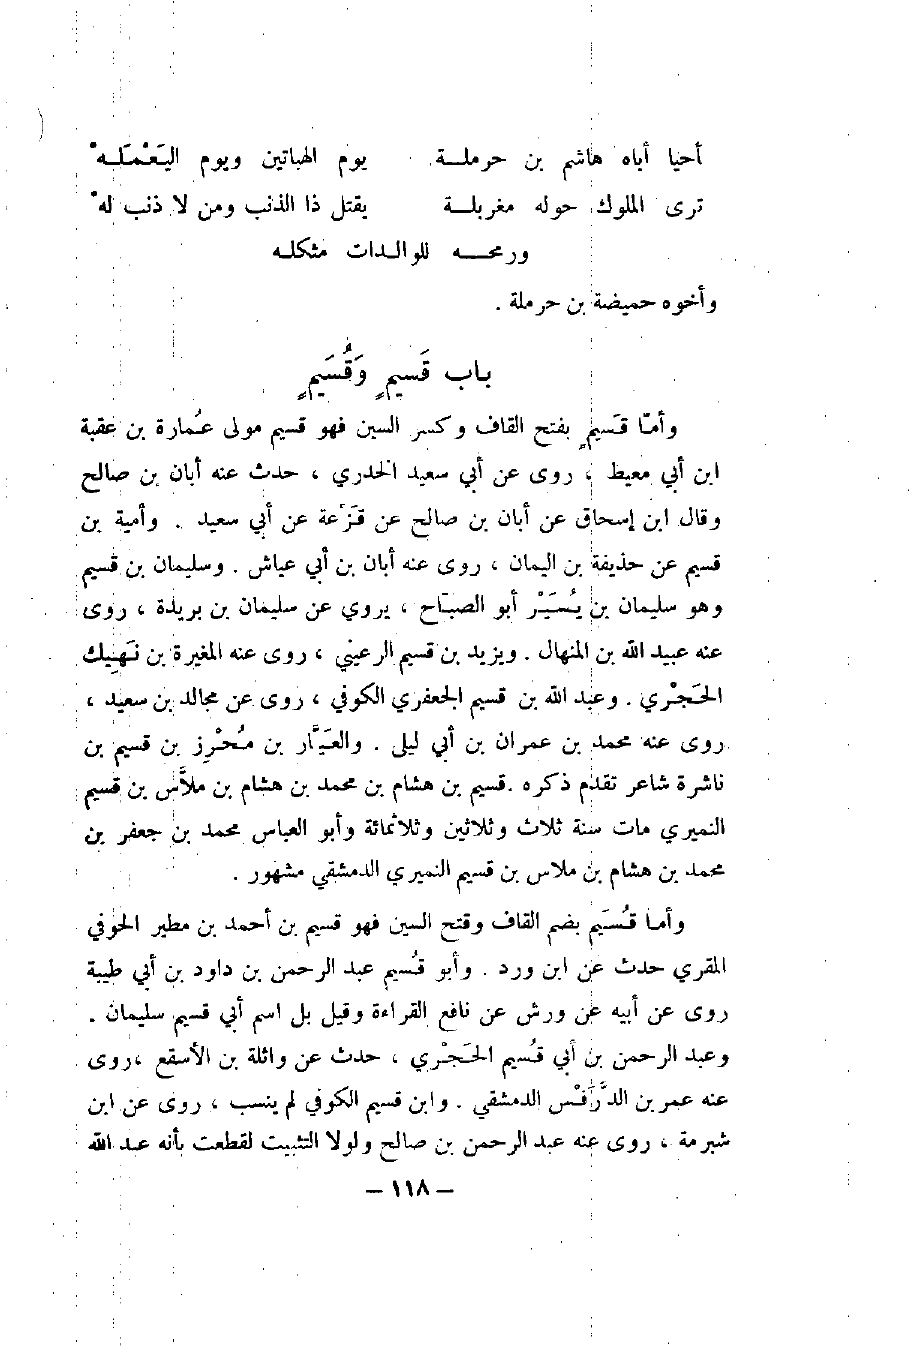 أحيا أباه هاشم بن حرملـة يوم الهباتين ويوم اليَعْمَلـهْ
ترى الملوك حوله مغربلـة يقتل ذا الذنب ومن لا ذنب لهْ
ورمحـــه للوالـدات مثكلـه
وأخوه حميضة بن حرملة .
باب قَسيمٍ وَقُسَيمٍ
وأمّا قَسيمٍ بفتح القاف وكسر السين فهو قسيم مولى عُمارة بن عقبة
ابن أبي معيط ، روى عن أبي سعيد الخدري ، حدث عنه أبان بن صالح
وقال ابن إسحاق عن أبان بن صالح عن قَزَعة عن أبي سعيد . وأمية بن
قسيم عن حذيفة بن اليمان ، روى عنه أبان بن أبي عياش . وسليمان بن قسيم
وهو سليمان بن يُسَيْر أبو الصبّاح ، يروي عن سليمان بن بريدة ، روى
عنه عبيد الله بن المنهال . ويزيد بن قسيم الرعيني ، روى عنه المغيرة بن نَهيك
الحَجْري . وعبد الله بن قسيم الجعفري الكوفي ، روى عن مجالد بن سعيد ،
روى عنه محمد بن عمران بن أبي ليلى . والعَيَّار بن مُحْرِز بن قسيم بن
ناشرة شاعر تقدم ذكره .قسيم بن هشام بن محمد بن هشام بن ملاَّس بن قسيم
النميري مات سنة ثلاث وثلاثين وثلاثمائة وأبو العباس محمد بن جعفر بن
محمد بن هشام بن ملاس بن قسيم النميري الدمشقي مشهور .
وأما قُسَيم بضم القاف وفتح السين فهو قسيم بن أحمد بن مطير الحوفي
المقري حدث عن ابن ورد . وأبو قُسيم عبد الرحمن بن داود بن أبي طيبة
روى عن أبيه عن ورش عن نافع القراءة وقيل بل اسم أبي قسيم سليمان .
وعبد الرحمن بن أبي قُسيم الحَجْري ، حدث عن واثلة بن الأسقع ،روى
عنه عمر بن الدَّرَفْس الدمشقي . وابن قسيم الكوفي لم ينسب ، روى عن ابن
شبرمة ، روى عنه عبد الرحمن بن صالح ولولا التثبيت لقطعت بأنه عبد الله
– ١١٨ –